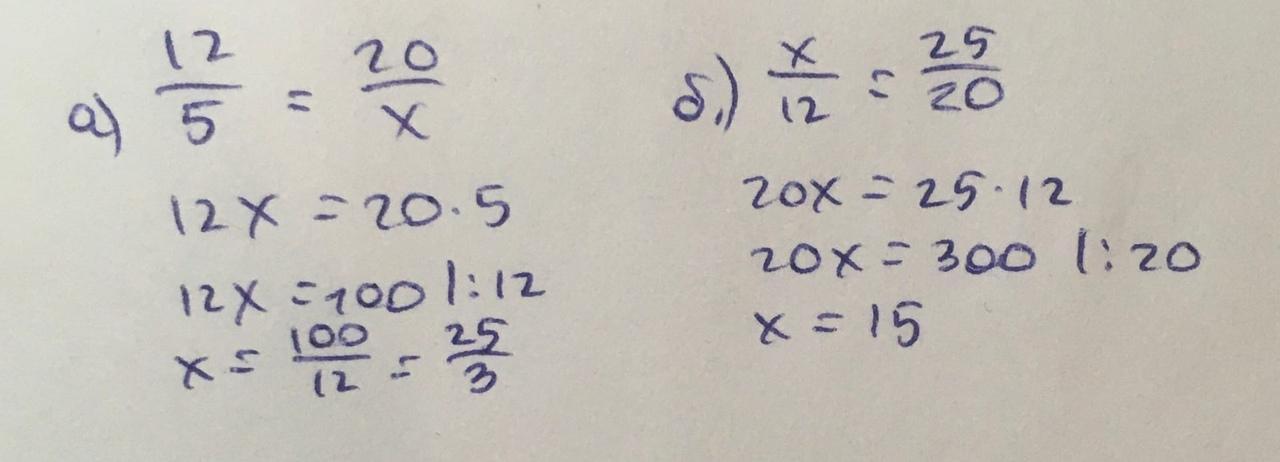 а) 12/5 = 20/x
12x = 20·5
12x = 100 |:12
x = 100/12 = 25/3
б.) x/12 = 25/20
20x = 25·12
20x = 300 |:20
x = 15